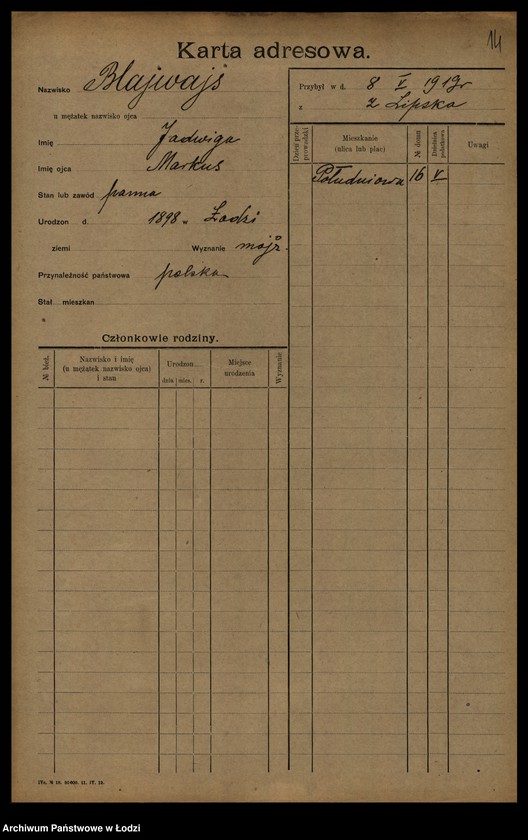 14
Karta adresowa.
Nazwisko Blajwajs
u mężatek nazwisko ojca
Imię Jadwiga
Imię ojca Markus
Stan lub zawód panna
Urodzon d. 1898 w Łodzi
ziemi Wyznanie mojż.
Przynależność państwowa polska
Stał. mieszkan.
Przybył w d. 8 V 1919 r
z z Lipska
Dzień prze-prowadzki
Mieszkanie (ulica lub plac)
№ domu
Dzielnica podatkowa
Uwagi
Południowa 16 V
Członkowie rodziny.
№ bież.
Nazwisko i imię
(u mężatek nazwisko ojca)
i stan
Urodzon
dnia mies. r.
Miejsce
urodzenia
Wyznanie
Archiwum Państwowe w Łodzi